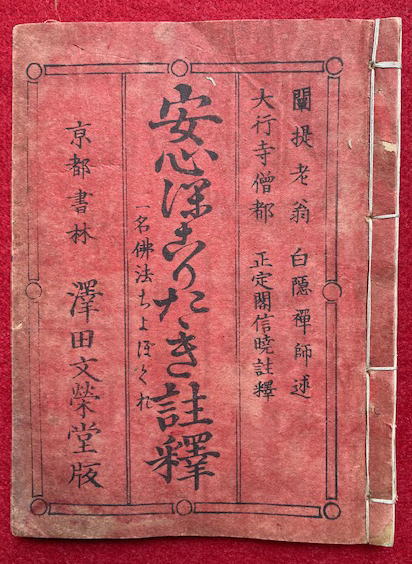 闡提老翁 白隱禪師述
大行寺僧都 正定閣信暁註釋
安心ほこりたゝき註釋
一名佛法ちよぼくれ
京都書林 澤田文榮堂版